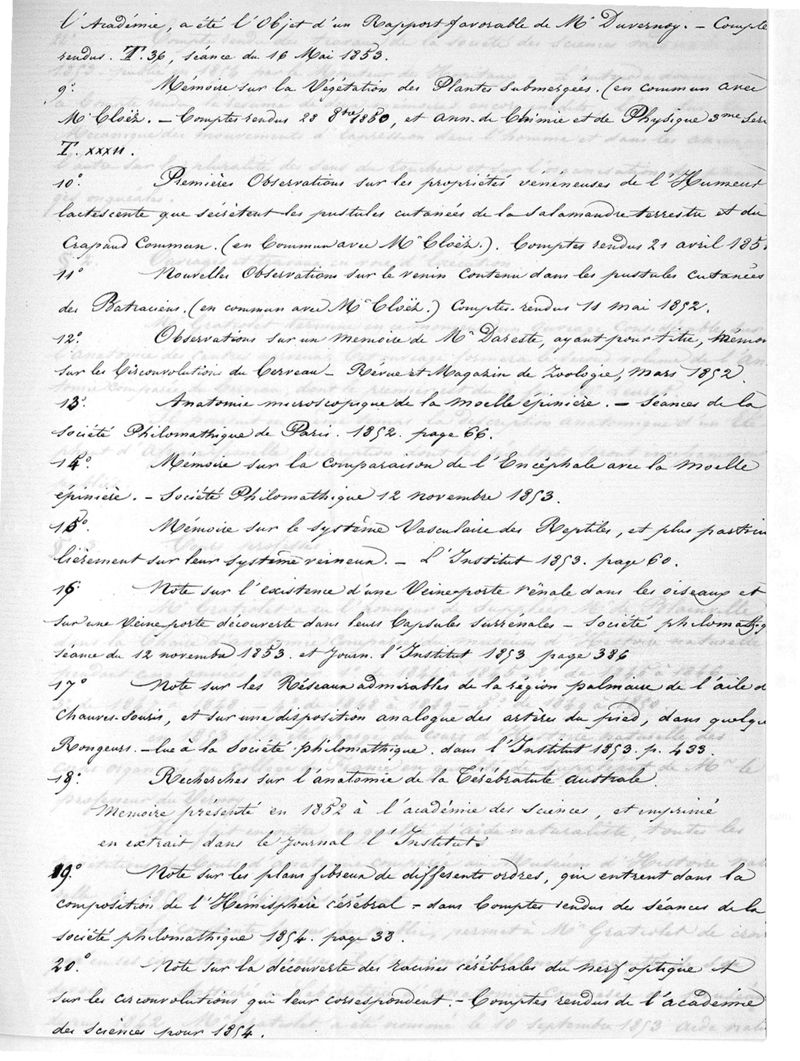 l'Académie, a été l'Objet d'un Rapport favorable de Mr Duvernoy. – Compte
rendus. T. 36, séance du 16 Mai 1853.
9° Mémoire sur la Végétation des Plantes Submergées. (en commun avec
Mr Cloëz. – Comptes rendus 28 8bre 1850, et ann. de Chimie et de Physique 3me Seri
T. XXXII.
10° Premières Observations sur les propriétés vénéneuses de l'Humeur
lactescente que sécrètent les pustules cutanées de la Salamandre terrestre et du
Crapaud Commun. (en Commun avec Mr Cloëz.). Comptes rendus 21 avril 185
11° Nouvelles Observations sur le venin contenu dans les pustules cutanées
des Batraciens. (en commun avec Mr Cloëz.) Comptes-rendus 11 mai 1852.
12° Observations sur un memoire de Mr Dareste, ayant pour titre, mémoi
sur les Circonvolutions du Cerveau – Révue et Magazin de Zoologie, mars 1852
13° Anatomie microscopique de la moelle épinière. – Séances de la
Société Philomathique de Paris. 1852. page 66.
14° Mémoire sur la comparaison de l'Encéphale avec la Moelle
épinière. – Société Philomathique 12 novembre 1853.
15° Mémoire sur le système Vasculaire des Reptiles, et plus particu
lièrement sur leur système veineux. – L'Institut 1853. page 60.
16° Note sur l'existence d'une Veine-porte rénale dans les oiseaux et
sur une Veine porte découverte dans leurs Capsules surrenales – Société philomathiq
séance du 12 novembre 1853 et Journ. l'Institut 1853 page 386
17° Note sur les Réseaux admirables de la région palmaire de l'aile d
Chauves-Souris, et sur une disposition analogue des artères du pied, dans quelque
Rongeurs. – lue à la Société philomathique. dans l'Institut 1853. p. 433.
18° Recherches sur l'anatomie de la Térébratule australe
Memoire présenté en 1852 à l'académie des Sciences, et imprimé
en extrait, dans le Journal l'Institut.
19° Note sur les plans fibreux de différents ordres, qui entrent dans la
composition de l'Hémisphère cérébral – dans Comptes rendus des séances de la
société philomathique 1854. page 33.
20° Note sur la découverte des racines cérébrales du nerf optique et
sur les circonvolutions qui leur correspondent – Comptes rendus de l'académie
des sciences pour 1854.